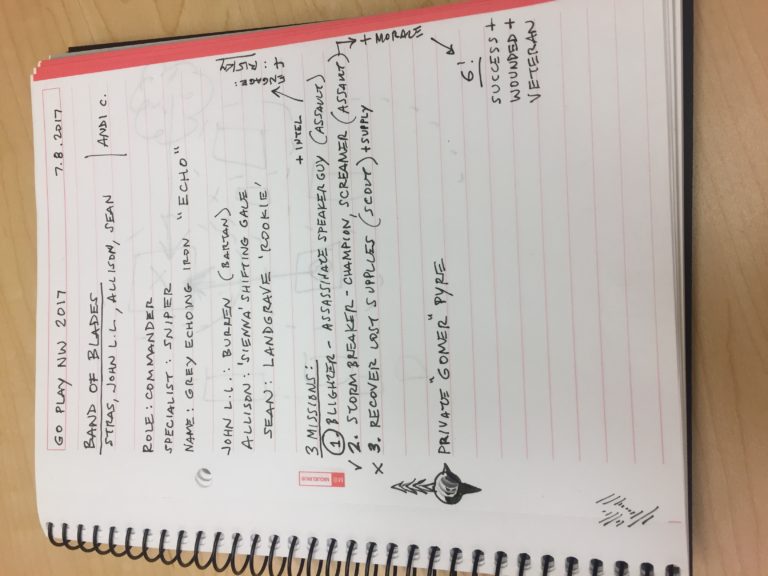 GO PLAY NW 2017 7.8.2017
BAND OF BLADES
STRAS, JOHN L.L., ALLISON, SEAN | ANDI C.
ROLE: COMMANDER
SPECIALIST: SNIPER
NAME: GREY ECHOING IRON "ECHO"
JOHN L.L.: BURREN (BARTAN)
ALLISON: 'SIENNA' SHIFTING GALE
SEAN: LANDGRAVE 'ROOKIE'
ENGAGE:
+ INTEL
3 MISSIONS:
1 BLIGHTER - ASSASSINATE SPEAKER GUY (ASSAULT)
✓ 2. STORM BREAKER - CHAMPION, SCREAMER (ASSAULT) + MORALE
X 3. RECOVER LOST SUPPLIES (SCOUT) + SUPPLY
PRIVATE "GOMER" PYRE
6!
SUCCESS +
WOUNDED +
VETERAN